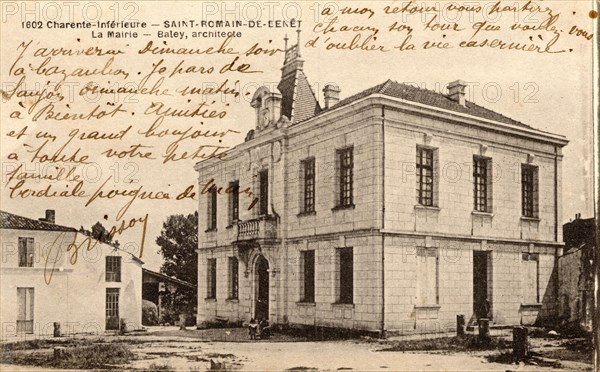 1602 Charente-Inférieure — SAINT-ROMAIN-DE-BENÊT
La Mairie — Baley, architecte
J'arriverai Dimanche soir
à Cozes. Je pars de
Saujon dimanche matin.
à Bientôt. Amitiés
et un grand bonjour
à toute votre petite
famille
Cordiale poignée de main
à mon retour vous partirez
chacun son tour que voulez vous
d'oublier la vie casernière.